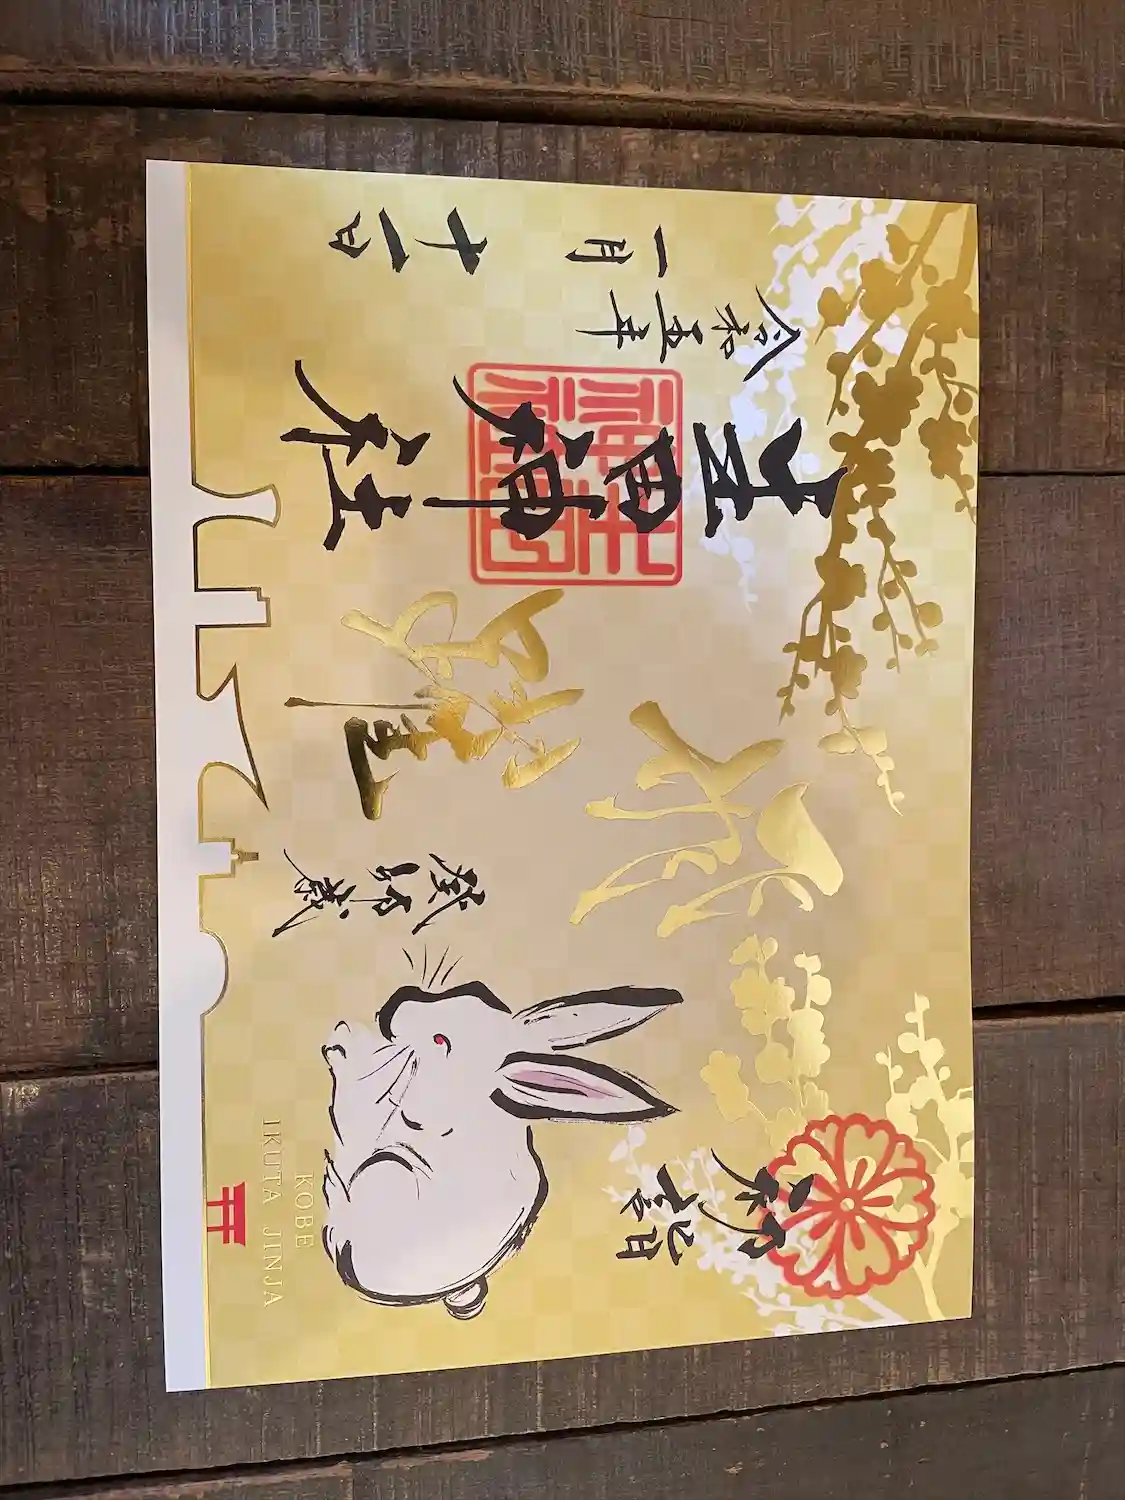 初詣
癸卯歳
飛躍
生田神社
生田
神社
令和五年
一月十一日
KOBE
IKUTA JINJA